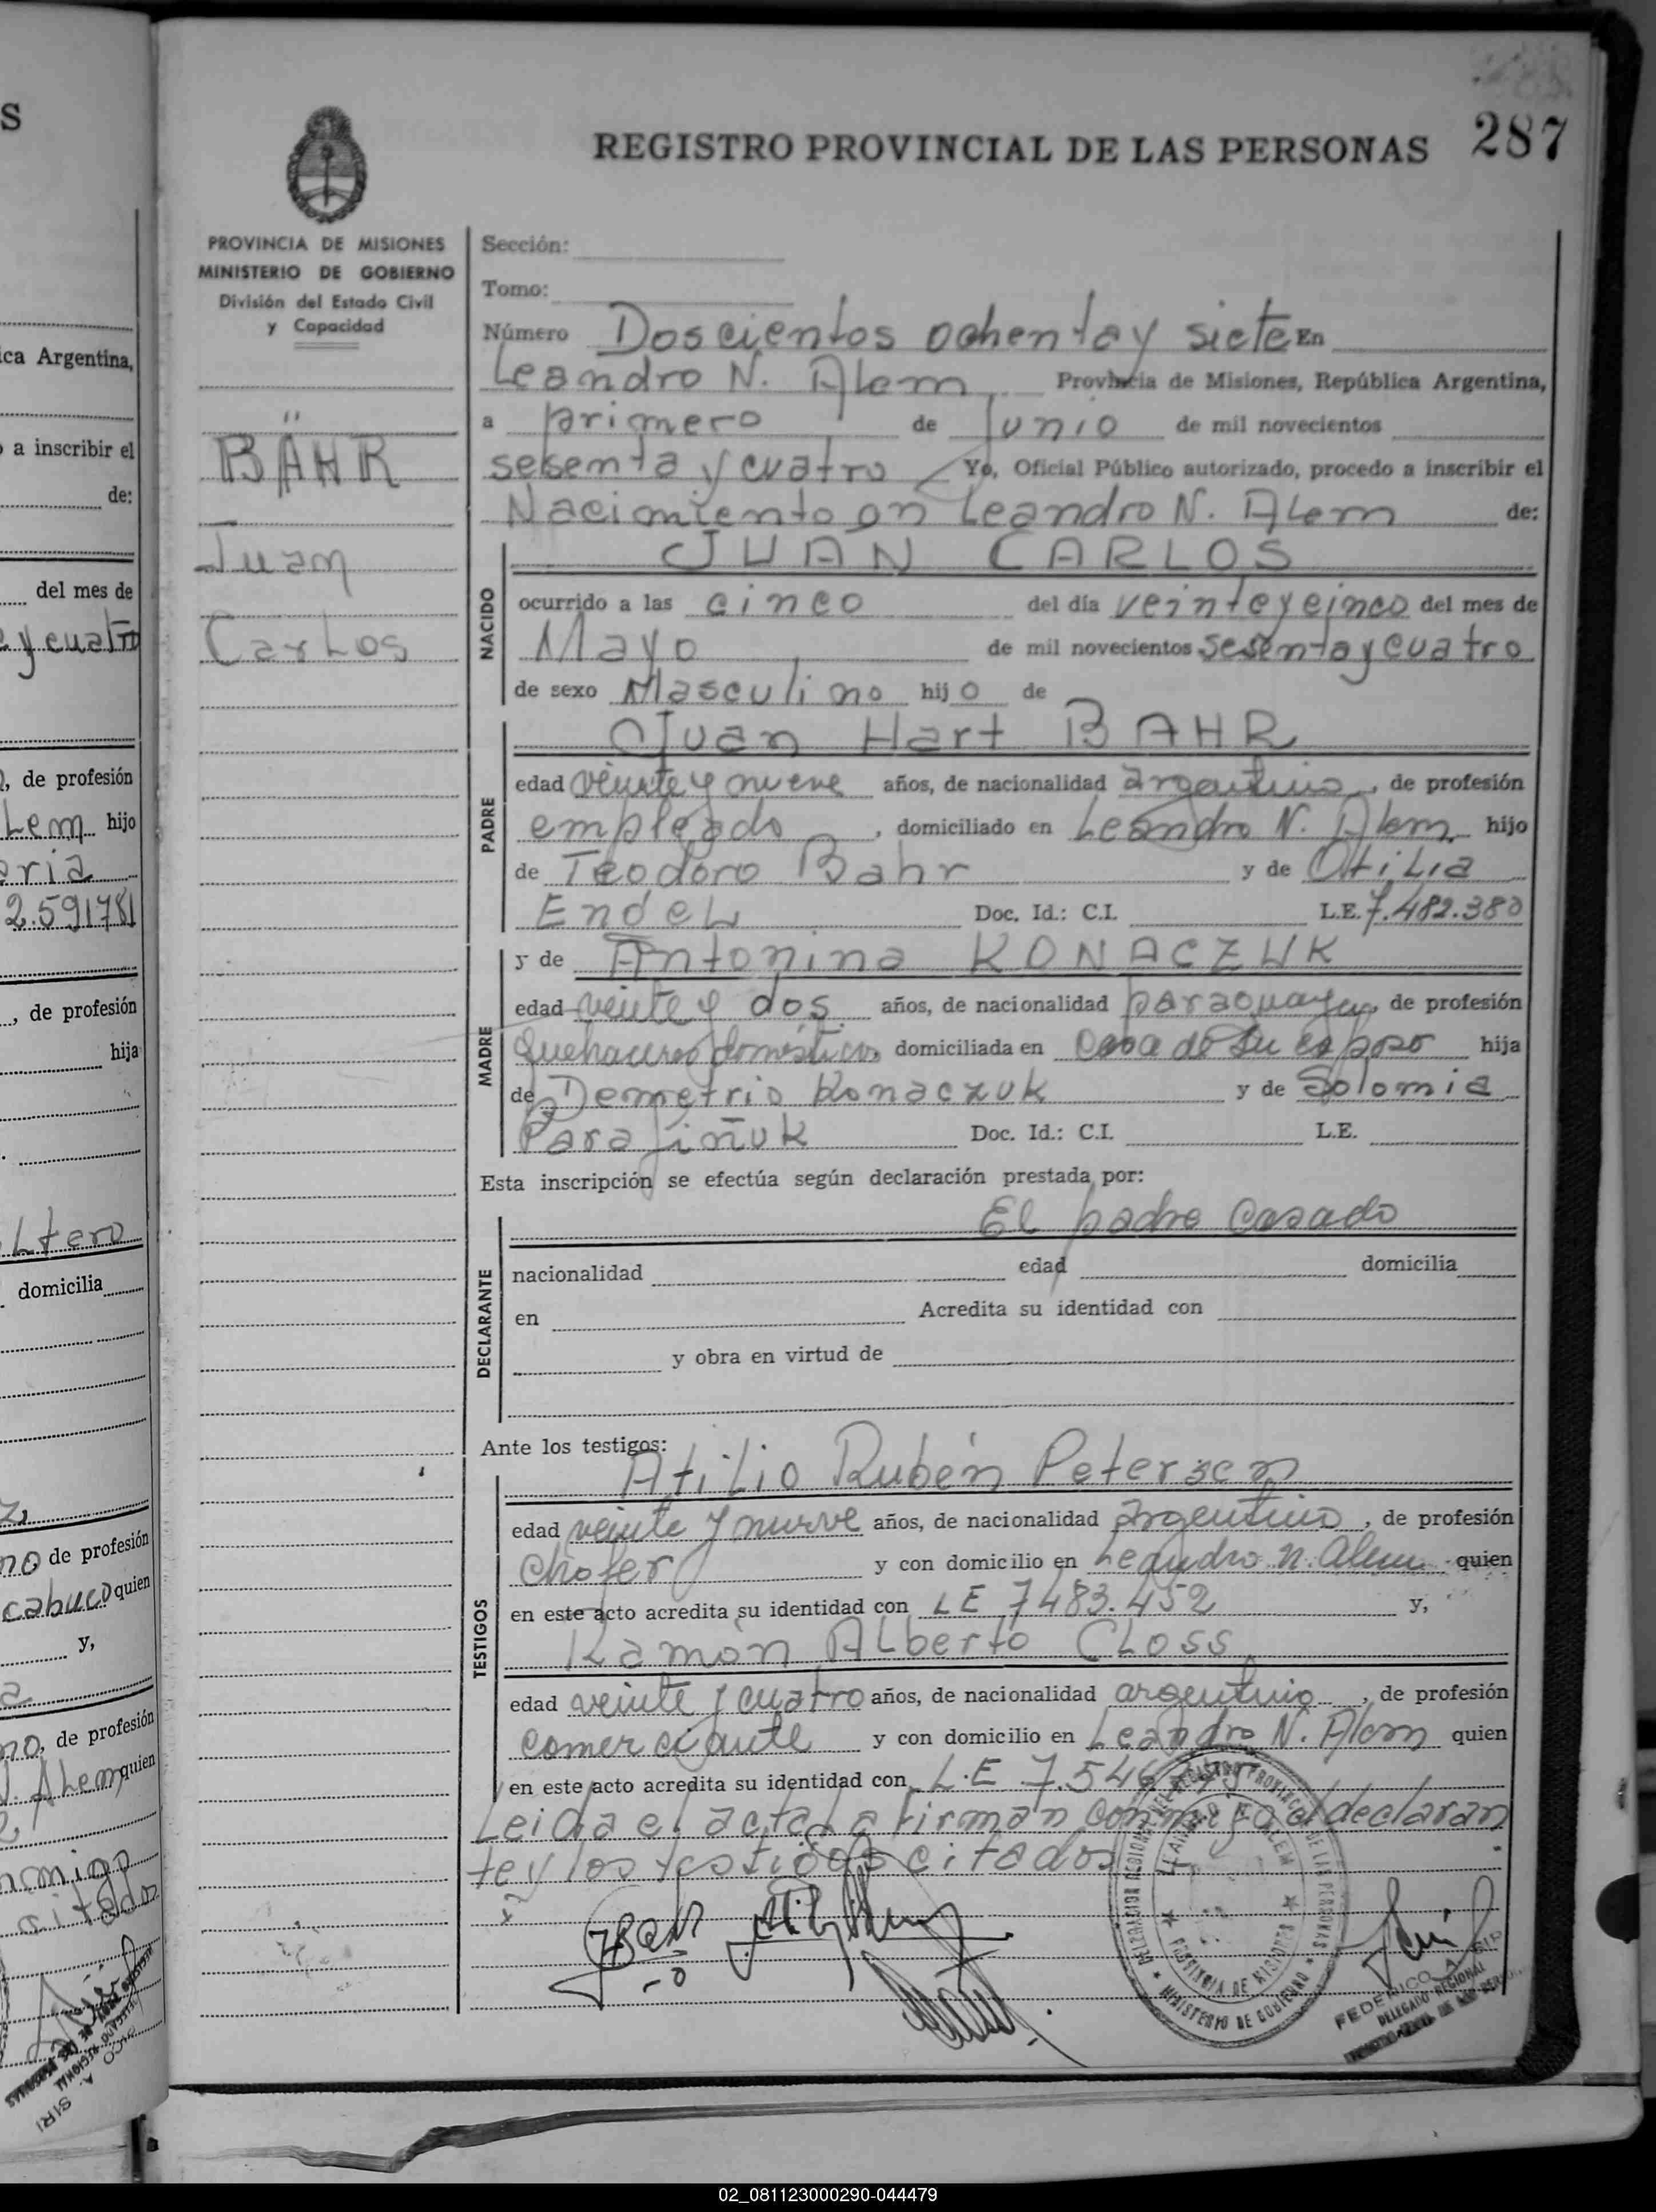 S
ica Argentina,
o a inscribir el
de:
del mes de
e y cuatro
, de profesión
Lem hijo
2.591781
, de profesión
hija
Ltero
domicilia
no, de profesión
cabuco quien
y,
no, de profesión
N. Alem quien
citados
287
REGISTRO PROVINCIAL DE LAS PERSONAS
PROVINCIA DE MISIONES
MINISTERIO DE GOBIERNO
División del Estado Civil
y Capacidad
BÄHR
Juan
Carlos
Sección:
Tomo:
Número Doscientos ochenta y siete En
Leandro N. Alem Provincia de Misiones, República Argentina,
a primero de Junio de mil novecientos
sesenta y cuatro Yo, Oficial Público autorizado, procedo a inscribir el
Nacimiento en Leandro N. Alem de:
NACIDO
JUAN CARLOS
ocurrido a las cinco del día veinte y cinco del mes de
Mayo de mil novecientos sesenta y cuatro
de sexo Masculino hijo de
PADRE
Juan Hart BAHR
edad veinte y nueve años, de nacionalidad argentina, de profesión
empleado, domiciliado en Leandro N. Alem hijo
de Teodoro Bahr y de Otilia
Endel Doc. Id.: C.I. L.E. 7.482.380
MADRE
y de Antonina KONACZUK
edad veinte y dos años, de nacionalidad paraguaya, de profesión
quehaceres domésticos domiciliada en casa de su esposo hija
de Demetrio Konaczuk y de Solomia
Parafiñuk Doc. Id.: C.I. L.E.
Esta inscripción se efectúa según declaración prestada por:
DECLARANTE
El padre casado
nacionalidad edad domicilia
en Acredita su identidad con
y obra en virtud de
Ante los testigos:
TESTIGOS
Atilio Rubén Petersen
edad veinte y nueve años, de nacionalidad argentino, de profesión
chofer y con domicilio en Leandro N. Alem quien
en este acto acredita su identidad con LE 7483.452 y,
Ramón Alberto Closs
edad veinte y cuatro años, de nacionalidad argentino, de profesión
comerciante y con domicilio en Leandro N. Alem quien
en este acto acredita su identidad con L.E 7.546
Leida el acta la firman conmigo el declaran
te y los testigos citados
MINISTERIO DE GOBIERNO
PROVINCIA DE MISIONES
FEDERICO A. SIRI
DELEGADO REGIONAL
02_081123000290-044479